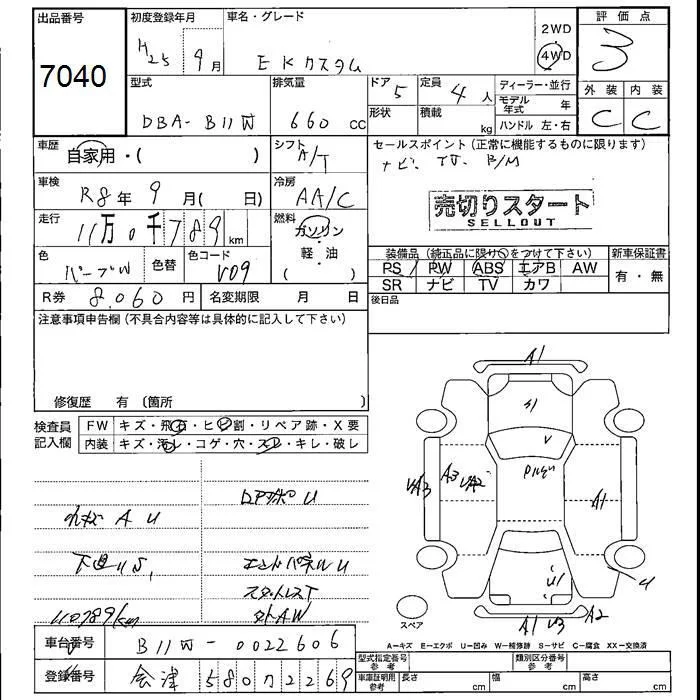 出品番号 初度登録年月 車名・グレード 評価点
7040 H25 9月 EKカスタム 2WD 4WD 3
型式 排気量 ドア 5 定員 4人 ディーラー・並行 外装 内装
形状 積載 kg モデル年式 年
DBA-B11W 660cc ハンドル 左・右 C C
車歴 自家用・( ) シフト A/T セールスポイント(正常に機能するものに限ります)
ナビ、TV、B/M
車検 R8年 9月( 日) 冷房 AA/C
売切りスタート
SELLOUT
走行 11万0千789km 燃料 ガソリン・軽油 ( )
色 パープルW 色替 色コード V09
装備品(純正品に限り○をつけて下さい) 新車保証書
PS PW ABS エアB AW 有・無
SR ナビ TV カワ
R券 8,060円 名変期限 月 日 後日品
注意事項申告欄(不具合内容等は具体的に記入して下さい)
修復歴 有(箇所 )
検査員記入欄 FW キズ・飛石・ヒビ割・リペア跡・X要
内装 キズ・汚レ・コゲ・穴・スレ・キレ・破レ
A U
下廻りS,
110789km
U
エンドパネルU
スタットレスT
社外AW
A1
A1
V
UA3 A3 UA2 A1
U1
U
A1 U3 A2
スペア
A-キズ E-エクボ U-凹み W-補修跡 S-サビ C-腐食 XX-交換済
車台番号 B11W-0022606
型式指定番号参考 類別区分番号参考
登録番号 会津 580 2269
車庫証明用参考 長さ cm 幅 cm 高さ cm